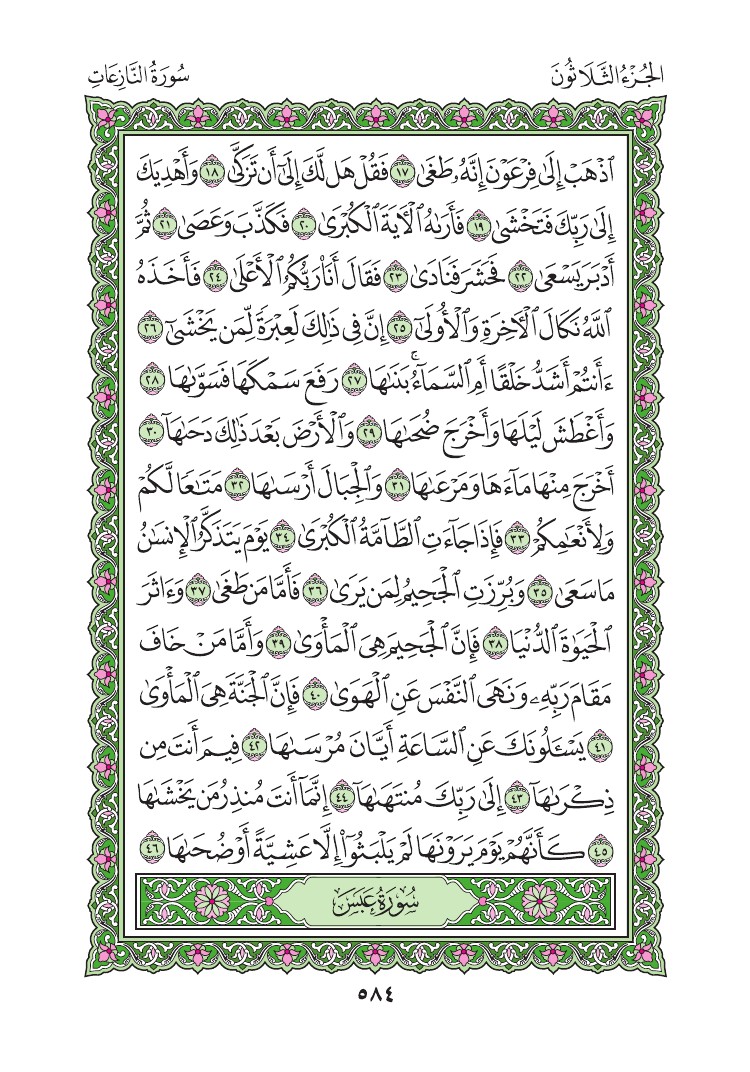 الجُزْءُ الثَّلَاثُونَ
سُورَةُ النَّازِعَاتِ
ٱذْهَبْ إِلَىٰ فِرْعَوْنَ إِنَّهُۥ طَغَىٰ ١٧ فَقُلْ هَل لَّكَ إِلَىٰٓ أَن تَزَكَّىٰ ١٨ وَأَهْدِيَكَ
إِلَىٰ رَبِّكَ فَتَخْشَىٰ ١٩ فَأَرَىٰهُ ٱلْـَٔايَةَ ٱلْكُبْرَىٰ ٢٠ فَكَذَّبَ وَعَصَىٰ ٢١ ثُمَّ
أَدْبَرَ يَسْعَىٰ ٢٢ فَحَشَرَ فَنَادَىٰ ٢٣ فَقَالَ أَنَا۠ رَبُّكُمُ ٱلْأَعْلَىٰ ٢٤ فَأَخَذَهُ
ٱللَّهُ نَكَالَ ٱلْـَٔاخِرَةِ وَٱلْأُولَىٰٓ ٢٥ إِنَّ فِى ذَٰلِكَ لَعِبْرَةً لِّمَن يَخْشَىٰٓ ٢٦
ءَأَنتُمْ أَشَدُّ خَلْقًا أَمِ ٱلسَّمَآءُ ۚ بَنَىٰهَا ٢٧ رَفَعَ سَمْكَهَا فَسَوَّىٰهَا ٢٨
وَأَغْطَشَ لَيْلَهَا وَأَخْرَجَ ضُحَىٰهَا ٢٩ وَٱلْأَرْضَ بَعْدَ ذَٰلِكَ دَحَىٰهَآ ٣٠
أَخْرَجَ مِنْهَا مَآءَهَا وَمَرْعَىٰهَا ٣١ وَٱلْجِبَالَ أَرْسَىٰهَا ٣٢ مَتَـٰعًا لَّكُمْ
وَلِأَنْعَـٰمِكُمْ ٣٣ فَإِذَا جَآءَتِ ٱلطَّآمَّةُ ٱلْكُبْرَىٰ ٣٤ يَوْمَ يَتَذَكَّرُ ٱلْإِنسَـٰنُ
مَا سَعَىٰ ٣٥ وَبُرِّزَتِ ٱلْجَحِيمُ لِمَن يَرَىٰ ٣٦ فَأَمَّا مَن طَغَىٰ ٣٧ وَءَاثَرَ
ٱلْحَيَوٰةَ ٱلدُّنْيَا ٣٨ فَإِنَّ ٱلْجَحِيمَ هِىَ ٱلْمَأْوَىٰ ٣٩ وَأَمَّا مَنْ خَافَ
مَقَامَ رَبِّهِۦ وَنَهَى ٱلنَّفْسَ عَنِ ٱلْهَوَىٰ ٤٠ فَإِنَّ ٱلْجَنَّةَ هِىَ ٱلْمَأْوَىٰ
٤١ يَسْـَٔلُونَكَ عَنِ ٱلسَّاعَةِ أَيَّانَ مُرْسَىٰهَا ٤٢ فِيمَ أَنتَ مِن
ذِكْرَىٰهَآ ٤٣ إِلَىٰ رَبِّكَ مُنتَهَىٰهَآ ٤٤ إِنَّمَآ أَنتَ مُنذِرُ مَن يَخْشَىٰهَا
٤٥ كَأَنَّهُمْ يَوْمَ يَرَوْنَهَا لَمْ يَلْبَثُوٓا۟ إِلَّا عَشِيَّةً أَوْ ضُحَىٰهَا ٤٦
سُورَةُ عَبَسَ
٥٨٤